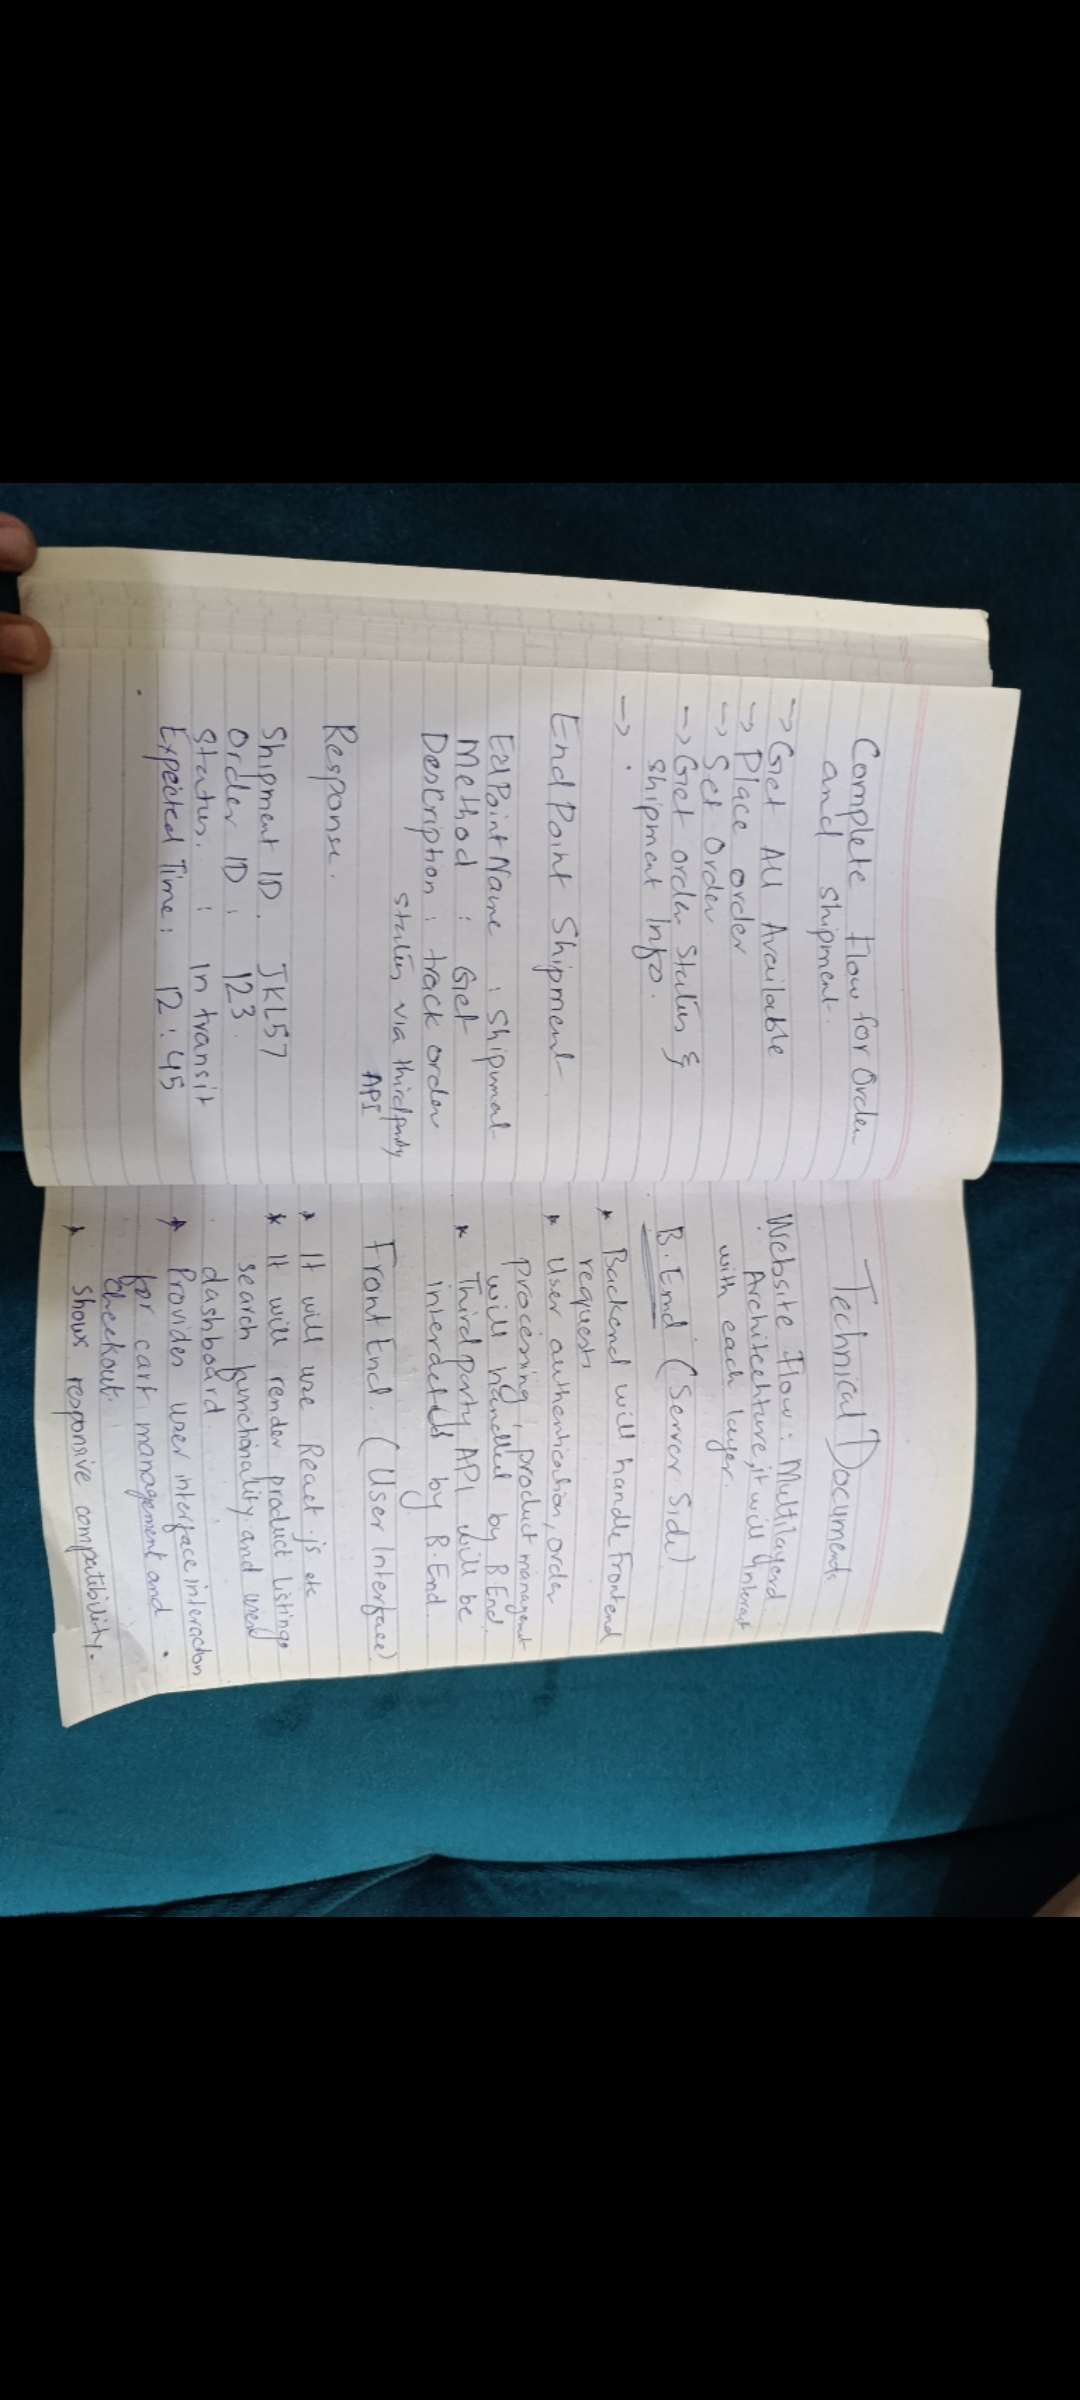 Complete Flow for Order
and shipment.
-> Get All Available
-> Place order
-> Set Order
-> Get order Status &
shipment Info.
->
End Point Shipment
Method : Get
Description : track order
status via thirdparty
API
Response.
Shipment ID. JKL57
Order ID : 123.
Status. : In transit
Expected Time : 12:45
Technical Documents
Website Flow : Multilayerd
Architechture, it will interact
with each layer.
B.End (Server Side)
* Backend will handle Frontend
requests
* User authentication, order
processing, product management
will handled by B.End.
* Third party API will be
by B.End.
Front End. (User Interface)
* It will use React js etc
* It will render product listings
search functionality and user
dashboard
* Provides user interface interaction
for cart management and
checkout.
* shows responsive compatibility.